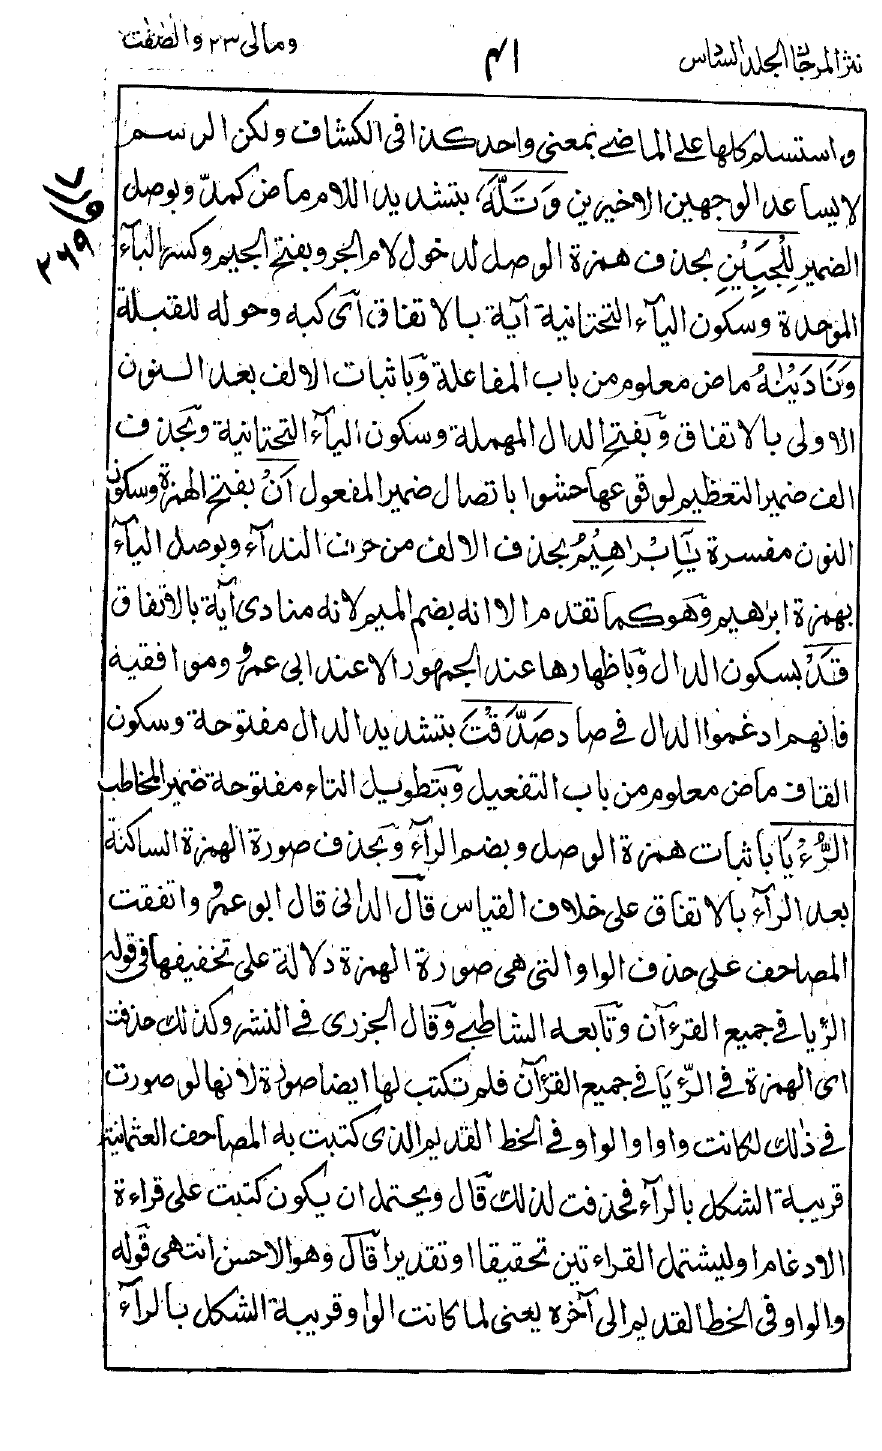 نثر المرجان الجلد السادس ٤١ ومالى ٢٣ والصّٰفّٰت
واستسلم كلها على الماضى بمعنى واحد كذا فى الكشاف ولكن الرسم
لا يساعد الوجهين الاخيرين وَتَلَّهٗ بتشديد اللام ماض كمدّ وبوصل
الضمير لِلْجَبِيْنِ بحذف همزة الوصل لدخول لام الجر وبفتح الجيم وكسر البآء
الموحدة وسكون اليآء التحتانية آية بالاتفاق اى كبه وحوله للقبلة
وَنَادَيْنٰهُ ماض معلوم من باب المفاعلة وباثبات الالف بعد النون
الاولى بالاتفاق وبفتح الدال المهملة وسكون اليآء التحتانية وبحذف
الف ضمير التعظيم لوقوعها حشوا باتصال ضمير المفعول اَنْ بفتح الهمزة وسكون
النون مفسرة يٰٓاِبْرٰهِيْمُ بحذف الالف من حرف الندآء وبوصل اليآء
بهمزة ابرٰهيم وهو كما تقدم الا انه بضم الميم لانه منادى آية بالاتفاق
قَدْ بسكون الدال وباظهارها عند الجمهور الا عند ابى عمرو وموافقيه
فانهم ادغموا الدال فى صاد صَدَّقْتَ بتشديد الدال مفتوحة وسكون
القاف ماض معلوم من باب التفعيل وبتطويل التاء مفتوحة ضمير المخاطب
الرُّءْيَا باثبات همزة الوصل وبضم الرآء وبحذف صورة الهمزة الساكنة
بعد الرآء بالاتفاق على خلاف القياس قال الدانى قال ابو عمرو واتفقت
المصاحف على حذف الواو التى هى صورة الهمزة دلالة على تخفيفها فى قوله
الرُّيا فى جميع القرءآن وتابعه الشاطبى وقال الجزرى فى النشر وكذلك حذفت
اى الهمزة فى الرُّءْيَا فى جميع القرآن فلم تكتب لها ايضا صورة لانها لو صورت
فى ذٰلك لكانت واوا والواو فى الخط القديم الذى كتبت به المصاحف العثمانية
قريبة الشكل بالرآء فحذفت لذلك قال ويحتمل ان يكون كتبت على قراءة
الادغام او ليشتمل القراءتين تحقيقا او تقديرا قال وهو الاحسن انتهى قوله
والواو فى الخط القديم الى آخره يعنى لما كانت الواو قريبة الشكل بالرآء